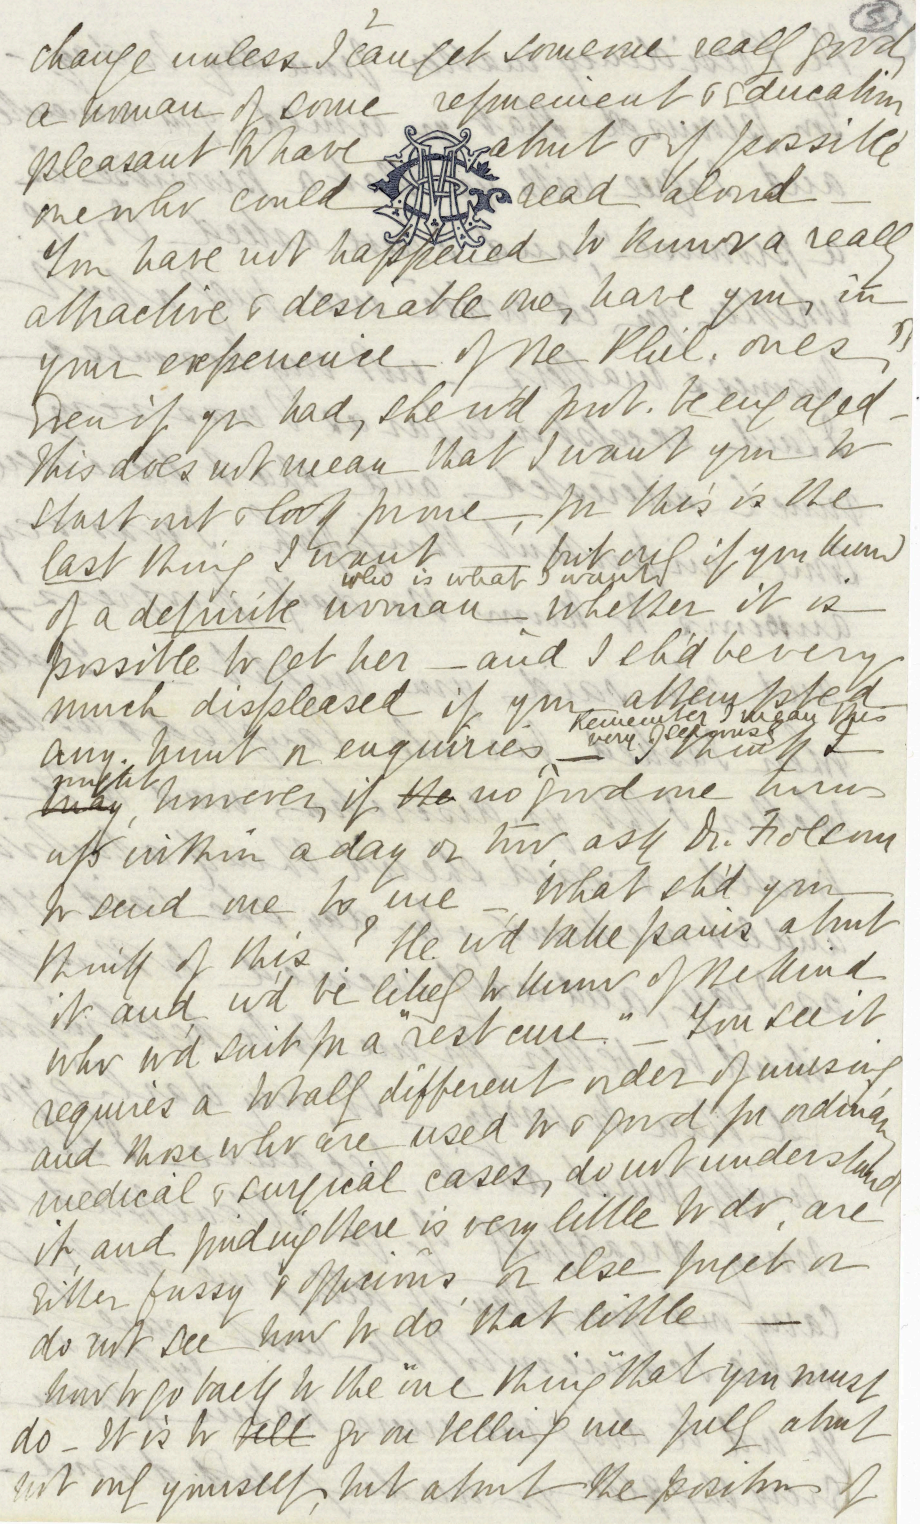 2
5
change unless I can get someone really good,
a woman of some refinement & education
pleasant to have about & if possible
one who could read aloud —
You have not happened to know a really
attractive & desirable one, have you, in
your experience of the Phil. ones, ?
Even if you had, she w'd prob. be engaged —
This does not mean that I want you to
start out & look for one, for this is the
last thing I want but only if you know
who is what I want
of a definite woman — whether it is
possible to get her — and I sh'd be very
much displeased if you attempted
Remember I mean this
very seriously
any hunt or enquiries — I think I
might
may, however, if the no good one turns
up within a day or two ask Dr. Folsom
to send one to me — What sh'd you
think of this ? He w'd take pains about
it and w'd be likely to know of the kind
who w'd suit for a "rest cure." — You see it
requires a totally different order of nursing
and those who are used to & good for ordinary
medical & surgical cases, do not understand
it, and finding there is very little to do, are
either fussy & officious or else forget or
do not see how to do that little —
Now to go back to the "one thing" that you must
do — It is to tell go on telling me fully about
not only yourself, but about the position of